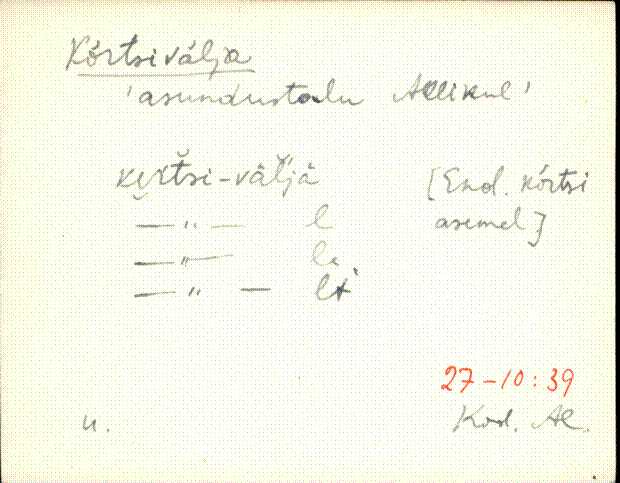 Kõrtsivälja
'asundustalu Allikul'
kɯrtsi-väljä [End. kõrtsi
—"— l asemel]
—"— le
—"— lt
27-10:39
u. Kod. Al.